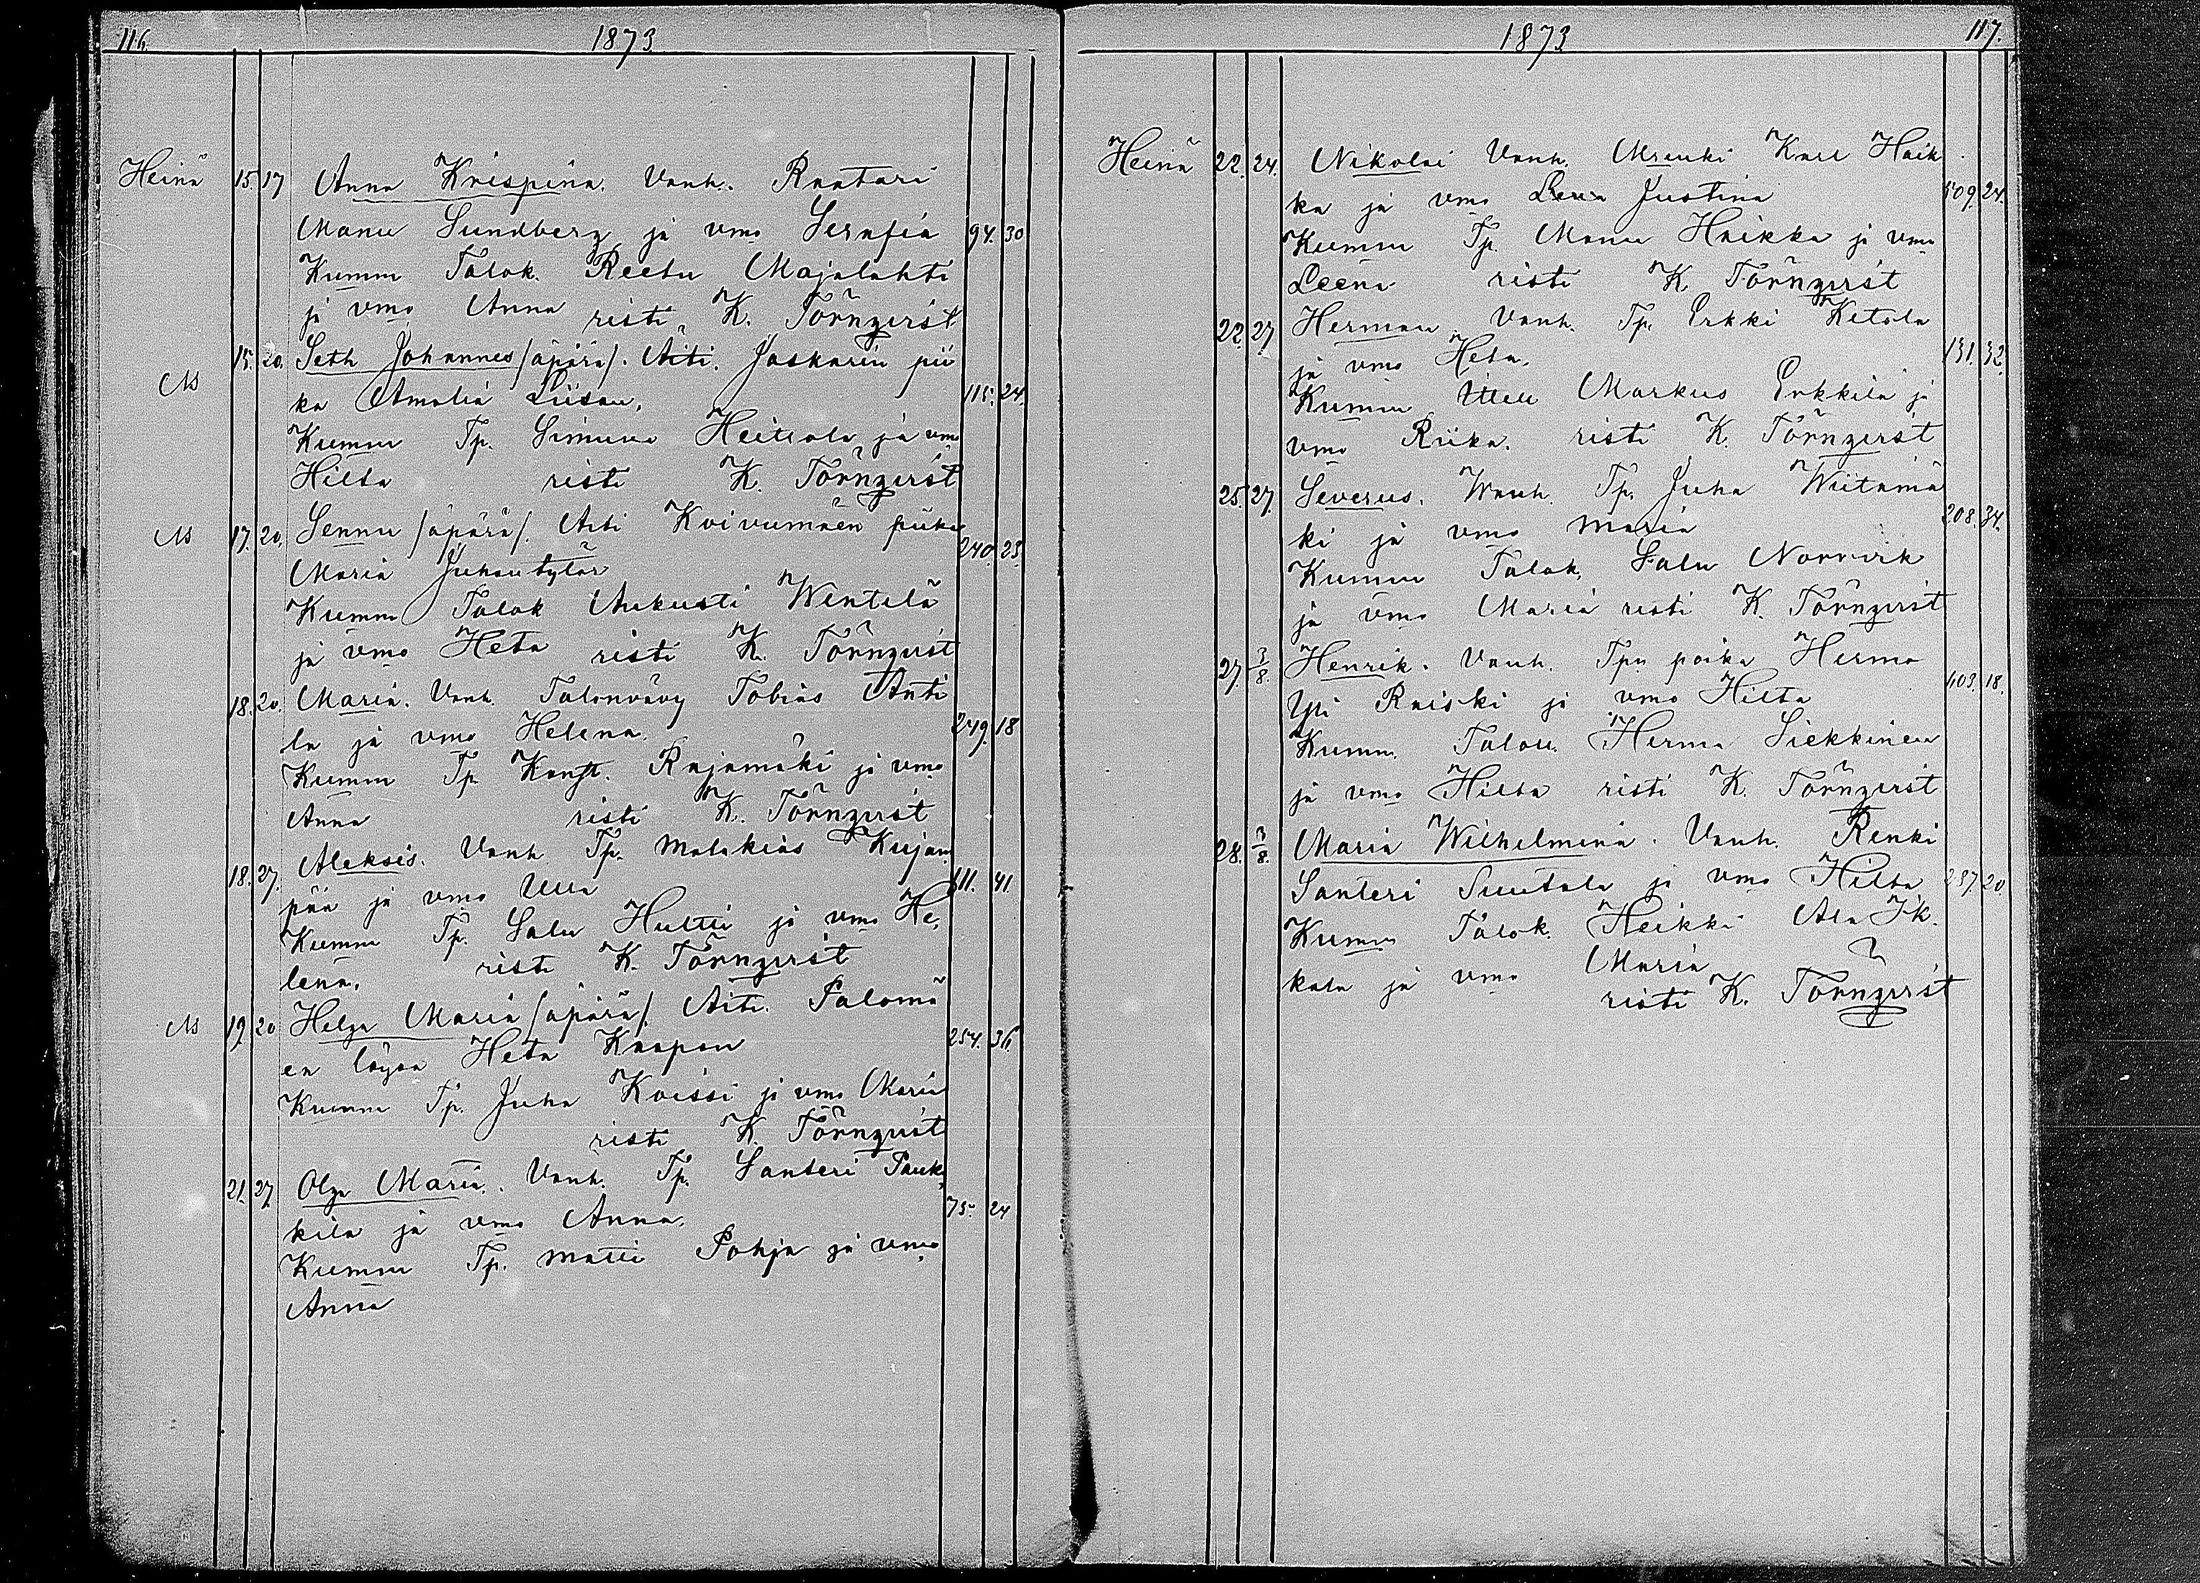 116. 1873
Heinä 15. 17 Anna Krispina. Vanh. Raatari
Manu Sundberg ja vmo Serafia 94. 30
Kumm Talok. Reetu Majalahti
ja vmo Anna risti K. Törnqvist
15. 20. Seth Johannes /äpärä/. Äiti. Jaskarin pii
ka Amalia Liisan. 115. 24.
Kumm Tp. Simuna Heitsola ja vmo
Hilta risti K. Törnqvist
17. 20. Sennu /äpärä/. Äiti Koivumäen piika
Maria Juhontytär 240. 23.
Kumm Talok Aukusti Wentelä
ja vmo Heta risti K. Törnqvist
18. 20. Maria. Vanh. Talonvävy Tobias Anti
la ja vmo Helena. 249. 18
Kumm Tp Konst. Rajamäki ja vmo
Anna risti K. Törnqvist
18. 27. Aleksis. Vanh. Tp. Malakias Kujan
pää ja vmo Ulla 41.
Kumm Tp. Salu Hutti ja vmo He,
lena. risti K. Törnqvist
19. 20 Helga Maria /äpärä/. Äiti. Palomä
en löysä Heta Kaapon 254. 36.
Kumm Tp. Juha Koissi ja vmo Maria
risti K. Törnqvist
21. 27. Olga Maria. Vanh. Tp. Santeri Pauk,
kila ja vmo Anna. 75. 24
Kumm Tp. Matti Pohja ja vmo
Anna
1873 117.
Heinä 22. 24. Nikolai Vanh. Mrenki Karl Haik
ka ja vmo Leena Justina 509. 24.
Kumm Tp. Manu Haikka ja vmo
Leena risti K. Törnqvist
22. 27. Herman. Vanh. Tp. Erkki Ketola
ja vmo Heta. 131. 32.
Kumm Markus Erkkilä ja
vmo Riika. risti K. Törnqvist
25. 27. Severus. Wanh. Tp. Juha Wiitamä
ki ja vmo Maria 208. 34.
Kumm Talok. Salu Norrvik
ja vmo Maria risti K. Törnqvist
27. 3/8. Henrik. Vanh. Tpn poika Herma
Yli Raiski ja vmo Hilta 103. 18.
Kumm. Talou. Herma Siekkinen
ja vmo Hilta risti K. Törnqvist
28. 3/8. Maria Wilhelmina. Vanh. Renki
Santeri Suutala ja vmo Hilta 287. 20
Kumm Talok. Heikki Ala Ik.
kala ja vmo Maria
risti K. Törnqvist